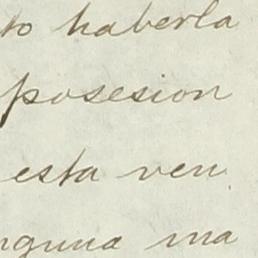 to haberla
posesion
esta ven
nguna ma